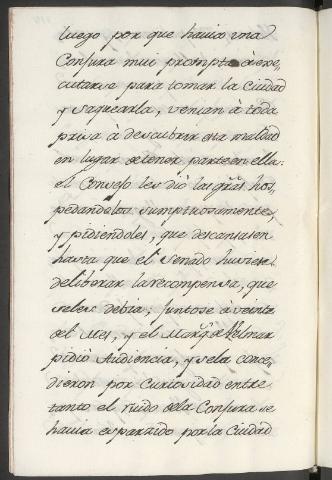 luego por que havia una
Conjura mui prompta à exe-
cutarse para tomar la Ciudad
y saquearla, venian à toda
prisa à descubrir esta maldad
en lugar de tener parte en ella:
el Consejo les dió las grãs hos-
pedandolos sumptuosamente,
y pidiendoles, que descansasen
hasta que el Senado huviese
deliberar la recompensa, que
seles debia; Juntose à veinte
del Mes, y el Marq.^s de Velmar
pidio Audiencia, y sela conce-
dieron por Curiosidad entre-
tanto el ruido dela Conjura se
havia esparzido por la Ciudad